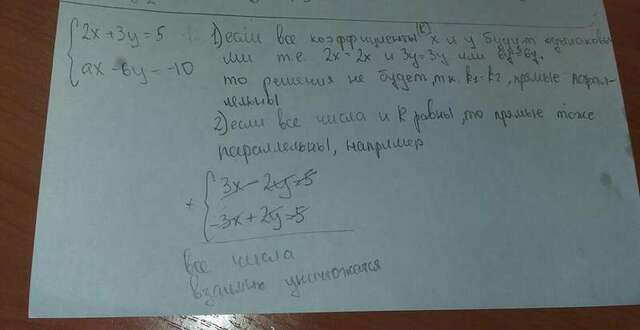 {2x+3y=5
ax-6y=-10
1) если все коэффициенты (k) x и y будут одинаковы
ми т.е. 2x=2x и 3y=3y или 6y=6y,
то решения не будет, т.к. k₁=k₂, прямые парал-
лельны
2) если все числа и k равны, то прямые тоже
параллельны, например
+ {3x-2y=5
-3x+2y=5
все числа
взаимно уничтожатся